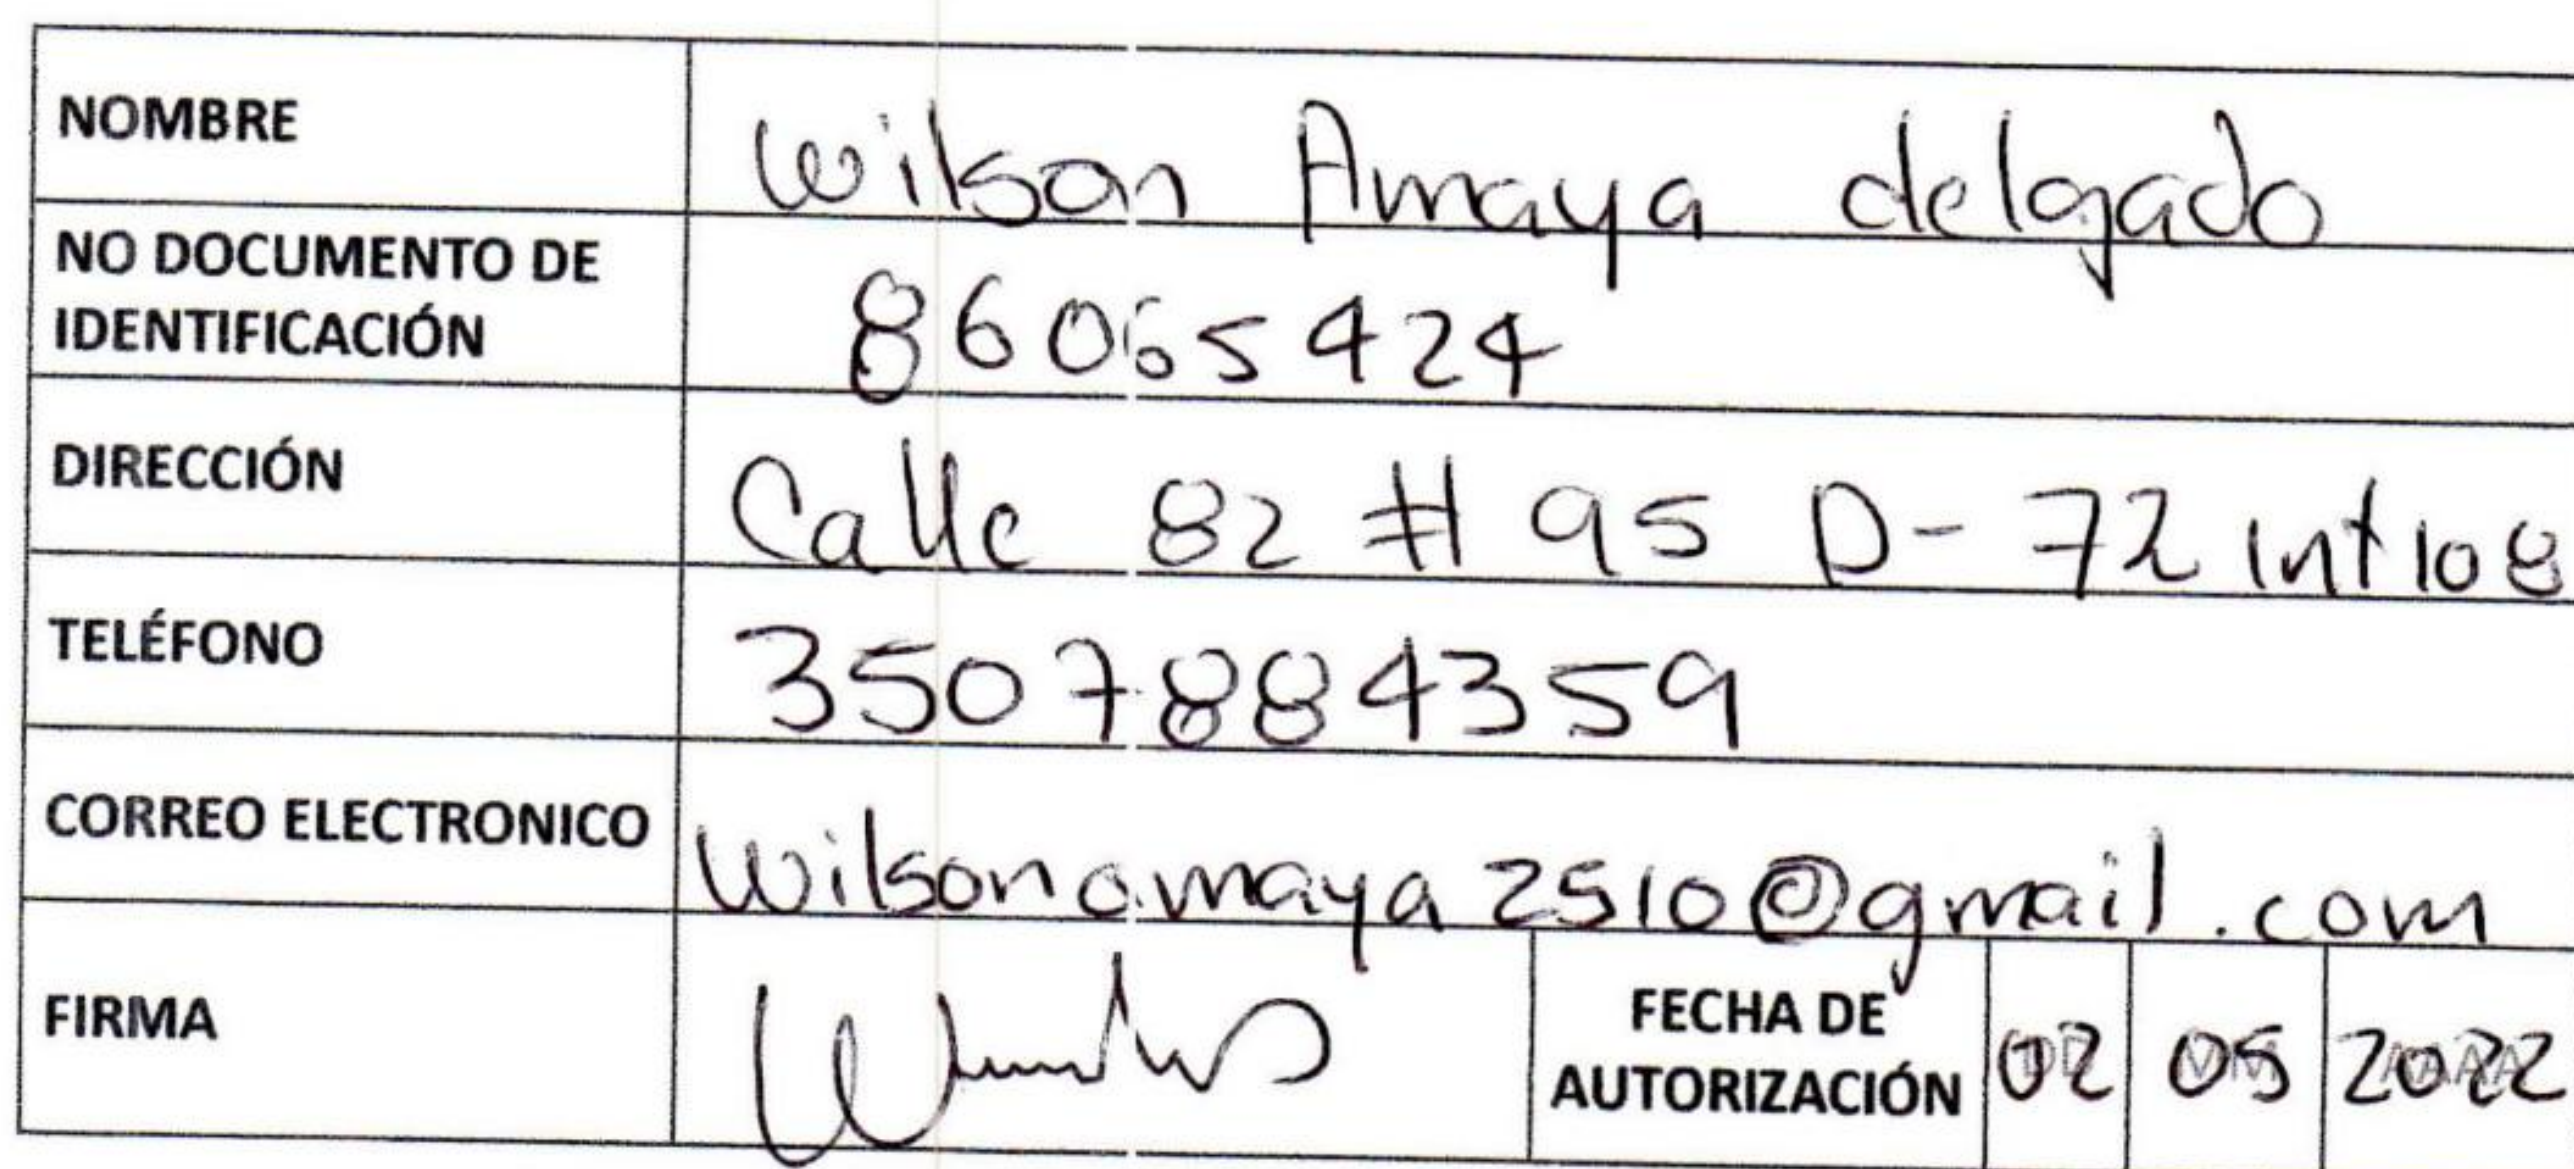 NOMBRE Wilson Amaya delgado
NO DOCUMENTO DE
IDENTIFICACIÓN 86065424
DIRECCIÓN Calle 82 # 95 D - 72 int 108
TELÉFONO 3507884359
CORREO ELECTRONICO wilsonamaya2510@gmail.com
FIRMA
FECHA DE
AUTORIZACIÓN 02 05 2022